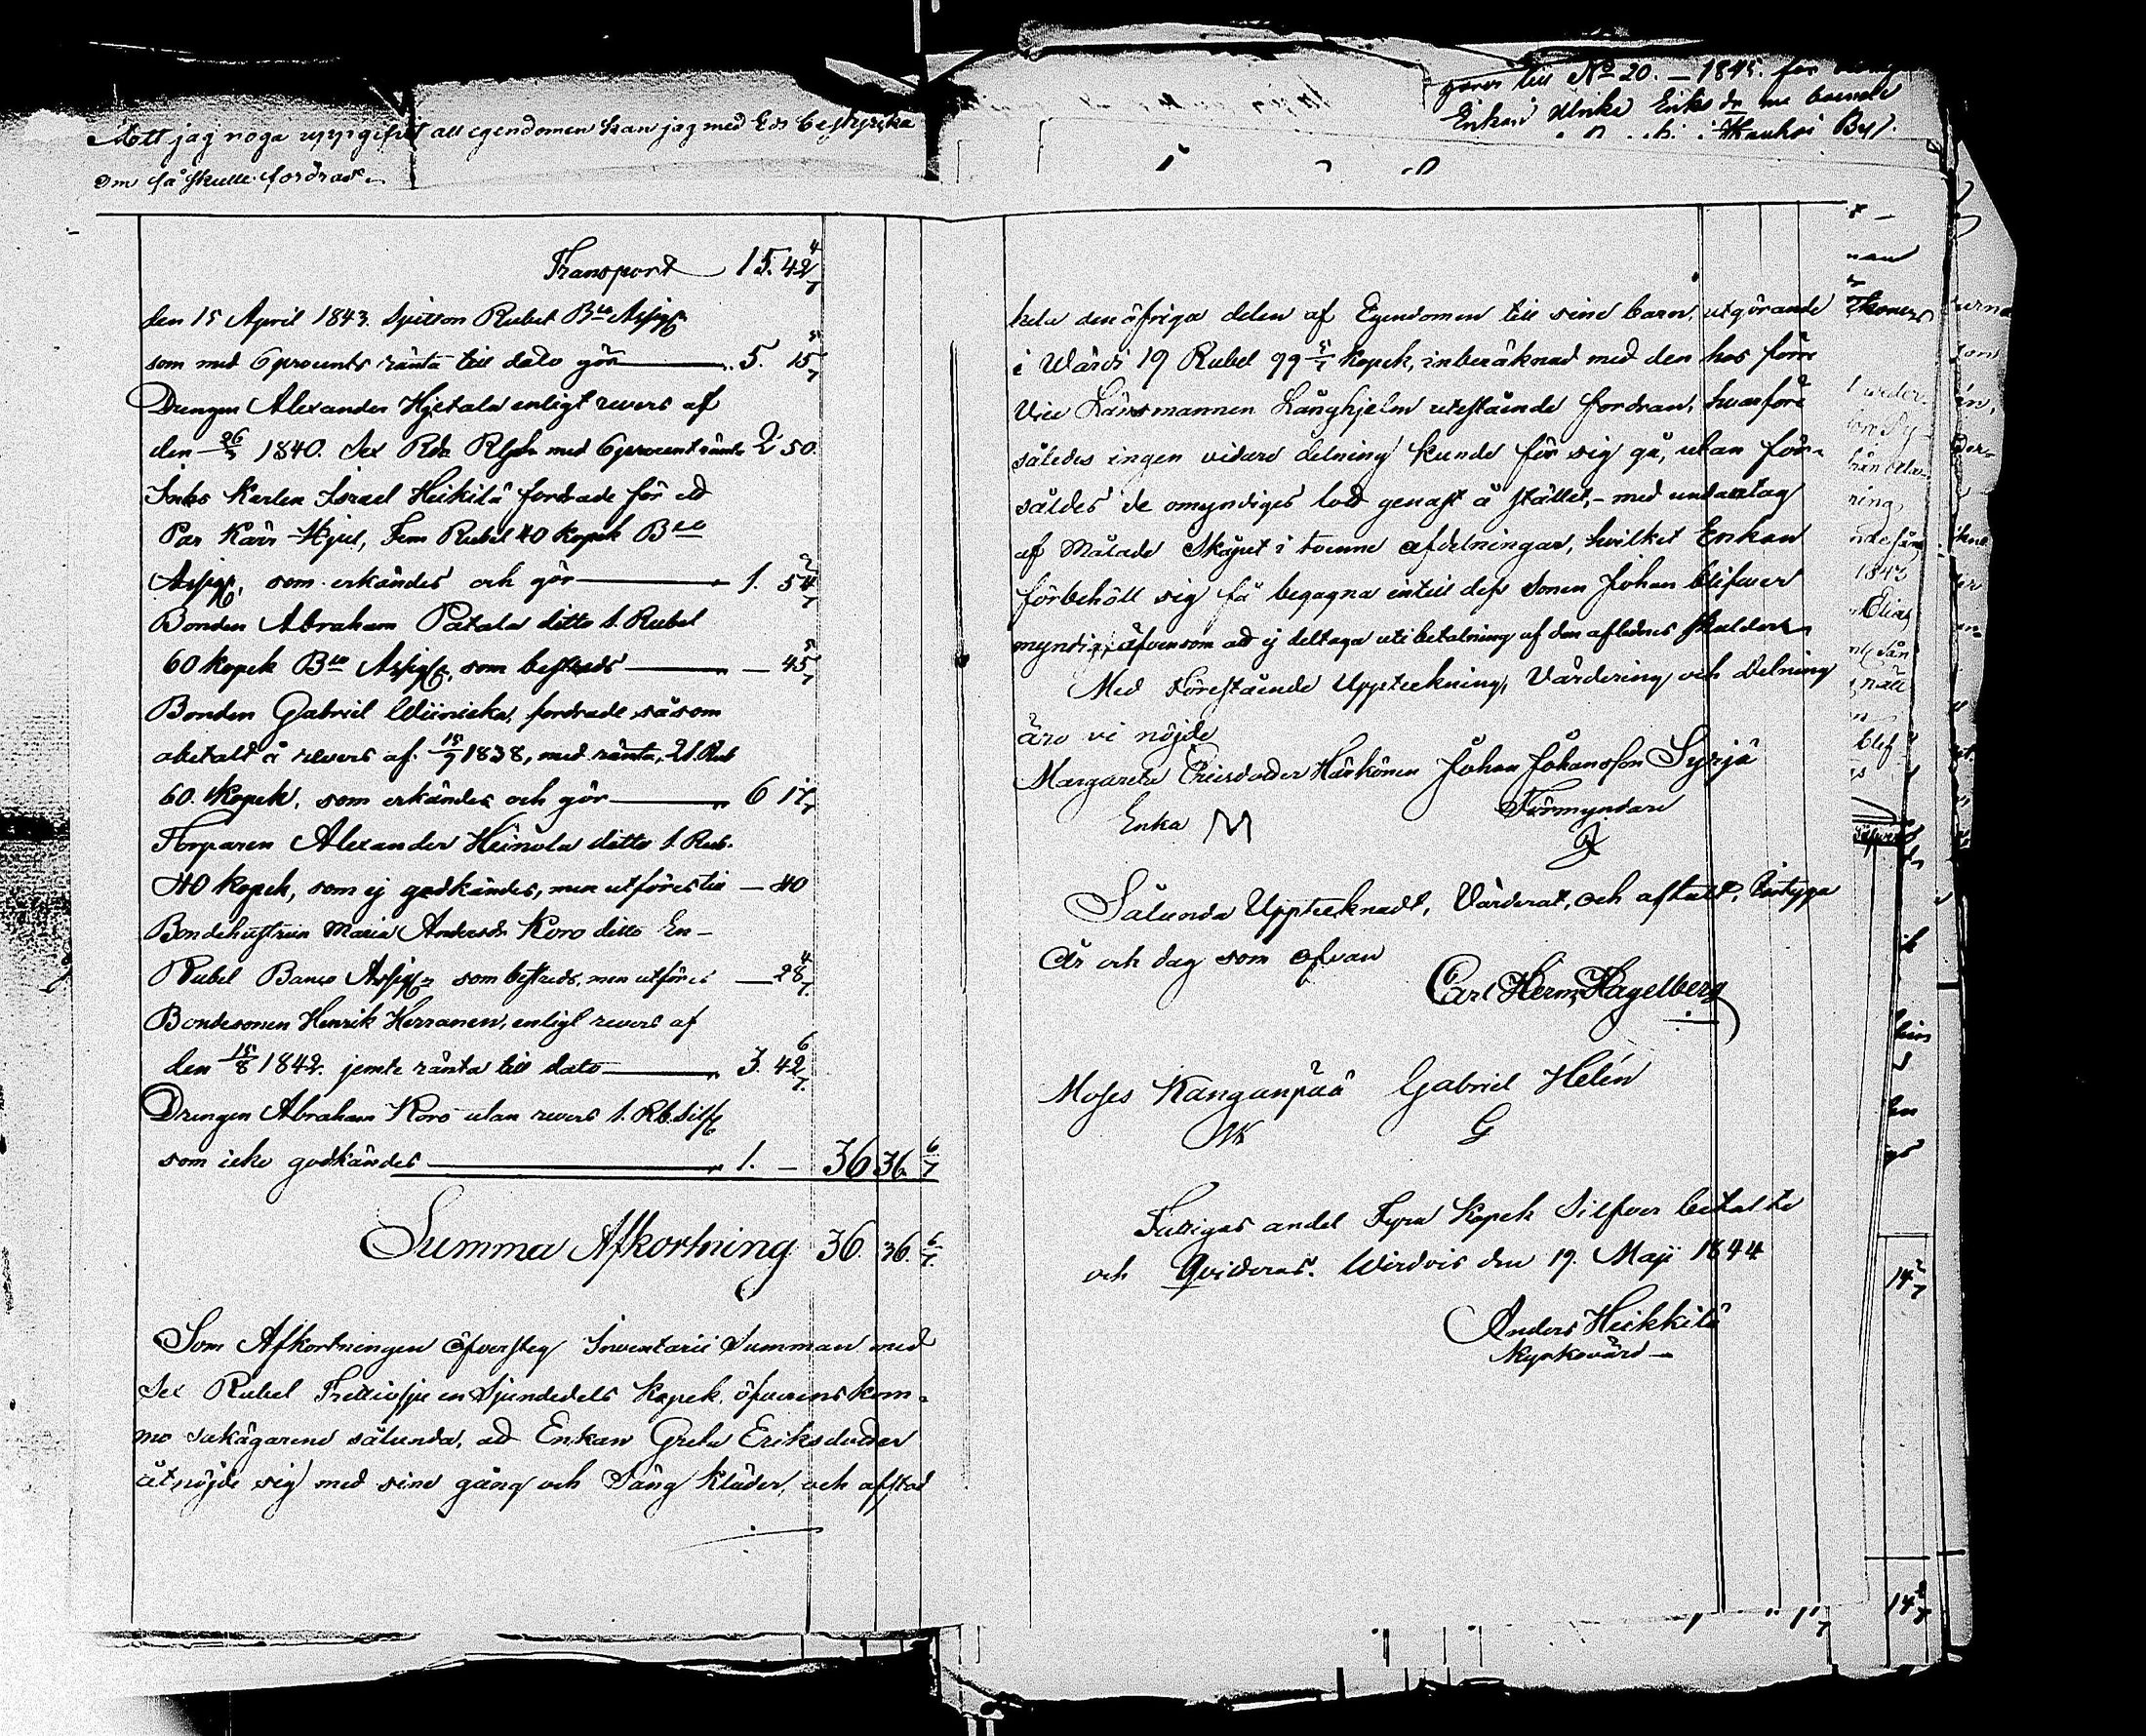 Att jag noga uppgifvit all egendomen kan jag med Ed bestyrcka
om så skulle fordras.
Transport 15. 42 4/7
den 15 April 1843. Rubel Bco Assig
som med 6 procents ränta till dato gör 5. 15 5/7
Drengen Alexander Hjetala enligt revers af
den 26 1840. Sex Rda Rgs med 6 procent ränta 2 50.
Inhs Karlen Israel Heikilä fordrade för ett
Par Kärr Hjul, Fem Rubel 40 Kopek Bco
Assig, som erkändes och gör 1. 54 2/7
Bonden Abraham Patala ditto 1. Rubel
60 Kopek Bco Assig, som bestreds — 45 5/7
Bonden Gabriel Wiinicka, fordrade såsom
obetalt å revers af 1838, med ränta 21. Rub
60. Kopek, som erkändes och gör 6 17 1/7
Torparen Alexander Heinola ditto 1. Rub.
40 Kopek, som ej godkändes, men utföres till — 40
Bondehustrun Maria Andersdr Koro ditto En
Rubel Banco Assig som bestreds, men utföres — 28 4/7.
Bondesonen Henrik Herranen, enligt revers af
den 15/8 1842. jemte ränta till dato 3. 42 6/7.
Drengen Abraham Koro utan revers 1. Rb. Silf
som icke godkändes 1. — 36 36 6/7
Summa Afkortning 36. 36. 6/7.
Som Afkortningen öfversteg Inventarii Summan med
Sex Rubel Trettiosju en Sjundedels Kopek, öfverens kom-
mo sakägarene sålunda, att Enkan Greta Eriksdotter
åtnöjde sig med sine gång och Säng Kläder, och afstod
görer till No 20. — 1845. för
Enkan Ulrika Eriks dr
i Kauhoi By.
hela den öfriga delen af Egendomen till sine barn, utgörande
i Wärdi 19 Rubel 99 5/7 Kopek, inberäknad med den hos förre
Vice Länsmannen Långhjelm utestående fordran, hvarföre
således ingen vidare delning kunde för sig gå, utan för-
såldes de omyndiges lott genast å stället, — med undantag
af Målade Skåpet i tvenne afdelningar, hvilket Enkan
förbehöll sig få begagna intill dess Sonen Johan blifver
myndig, äfvensom att ej deltaga uti betalning af den aflednes skulder
Med Förestående Uppteckning, Värdering och delning
äro vi nöjde
Margareta Ericsdotter Härkönen Johan Johansson Syrjä
Enka M Förmyndare
Sålunda Upptecknadt, Värderat, och aftalt, betyga
År och dag som ofvan
Carl Herm. Hagelberg
Moses Kanganpää Gabriel Helén
MK G
Fattigas andel Fyra Kopek Silfver betalte
och Qvitteras. Wirdois den 19. Maji 1844
Anders Heikkilä
Kyrkovärd
14 2/7